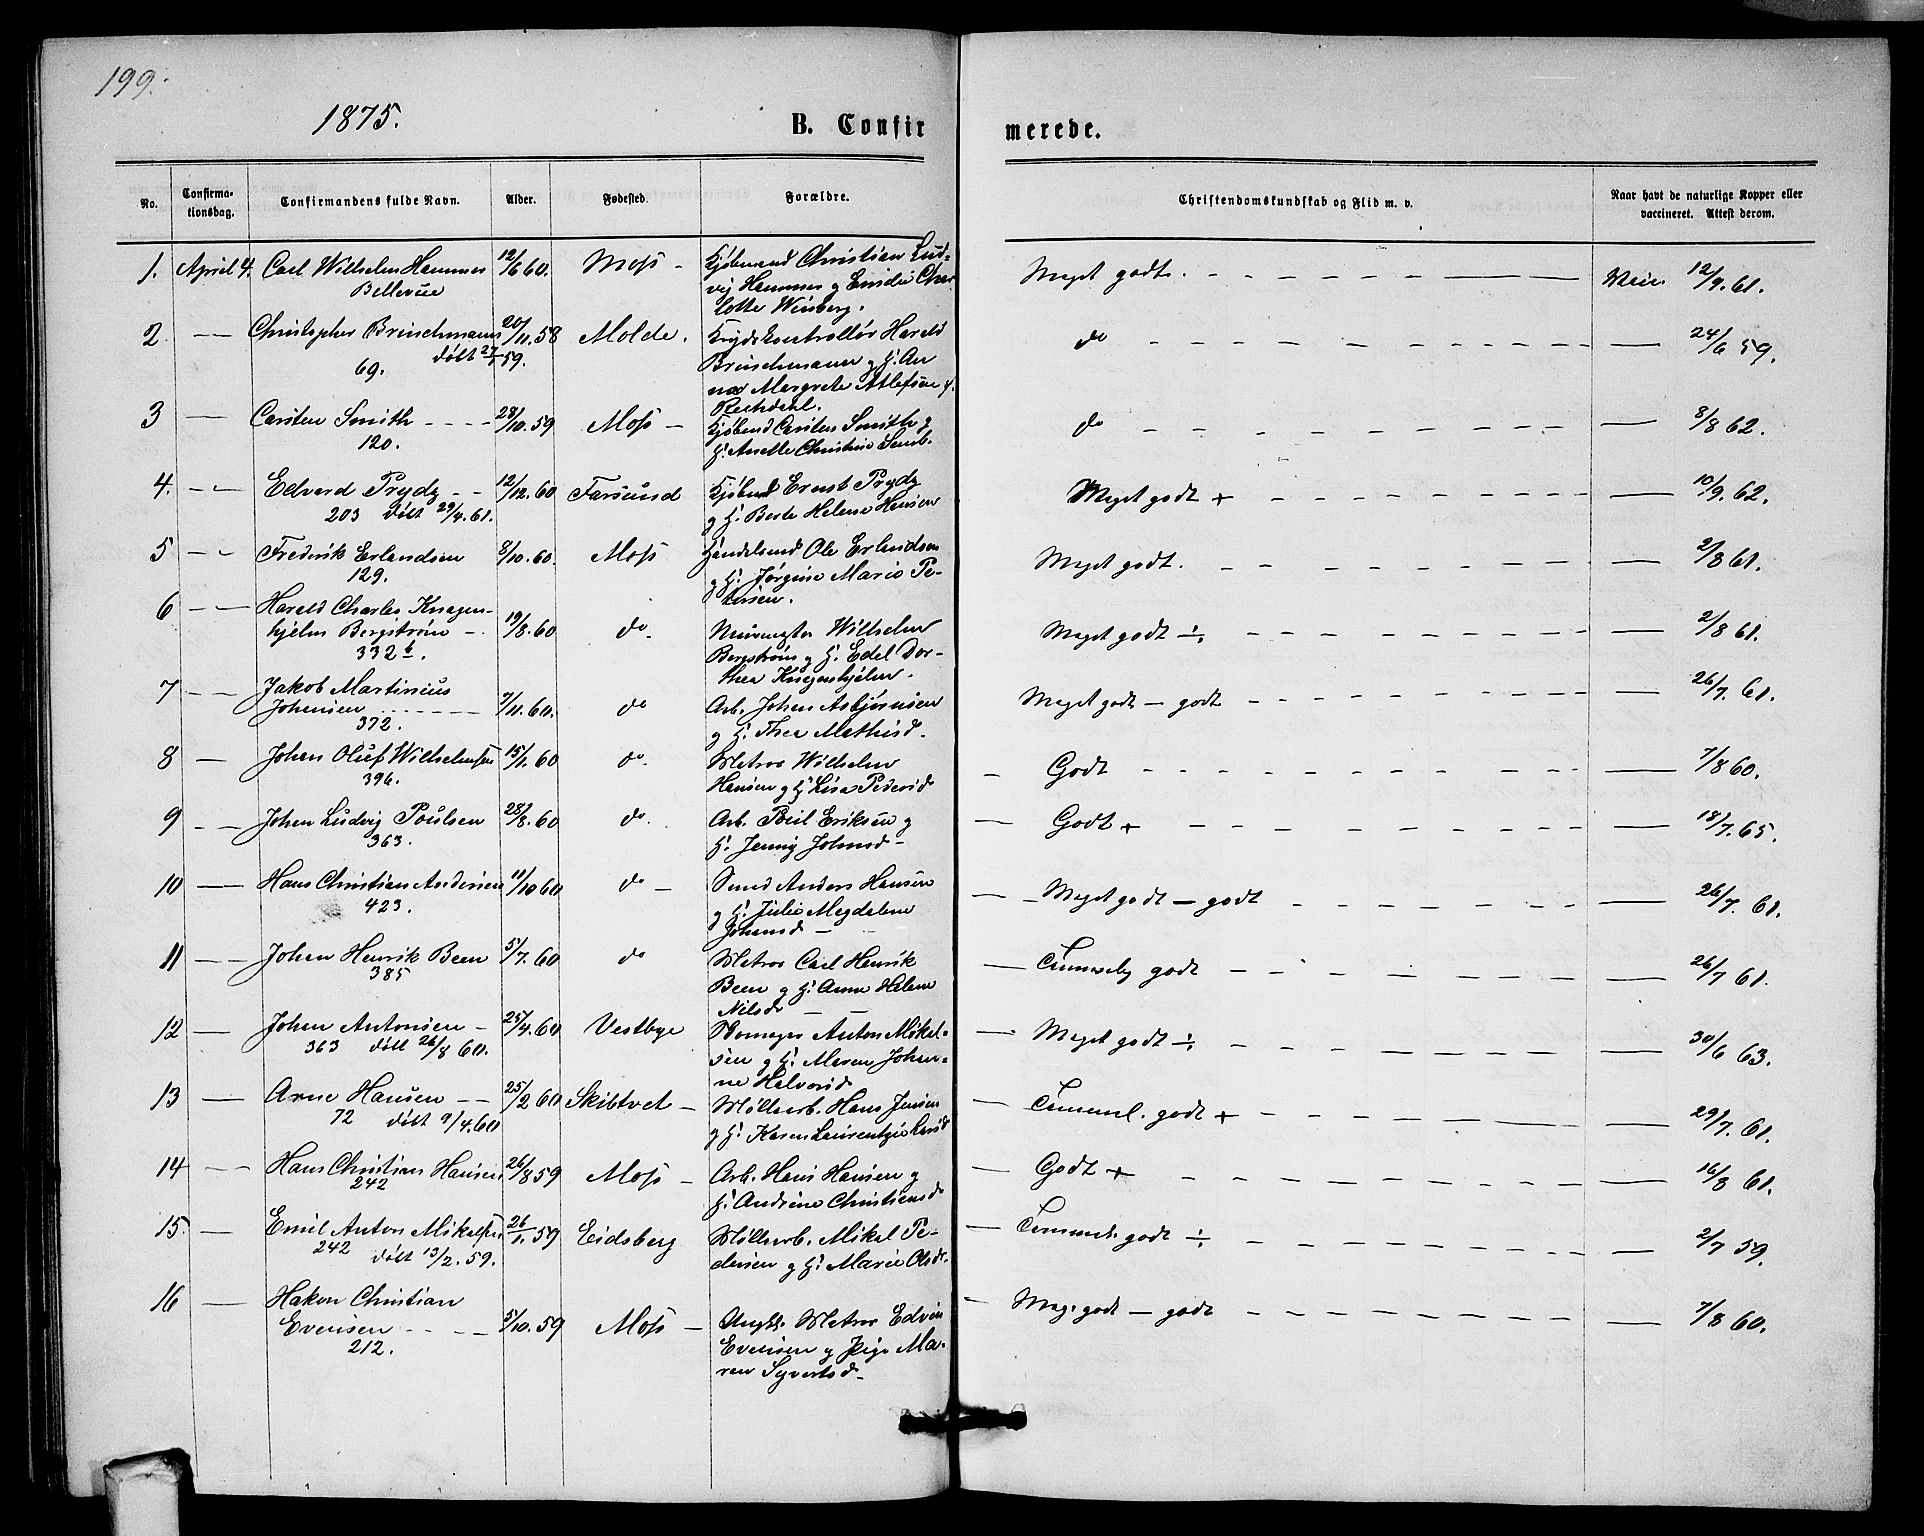 199.
1875.
B. Confirmerede.
No. Confirmationsdag. Confirmandens fulde Navn. Alder. Fødested. Forældre. Christendomskundskab og Flid m. v. Naar havt de naturlige Kopper eller vaccineret. Attest derom.
1. April 4. Carl Wilhelm Hammer 12/6 60. Moss - Kjøbmand Christian Lud- Meget godt. - - - - Vacc. 12/9. 61.
Bellevue vig Hammer g Emilie Char
lotte Winberg.
2. - - Christopher Brinchmann 20/11. 58 Molde. Harald do - - - 24/6 59.
døbt 27/1 59. Brinchmann g H. An
69. na Margrete f.
3 - Carsten Smith - - - - 28/10. 59 Moss - Kjøbmd Carsten Smith g do - - - 8/8 62.
120. H. Anette Christine
4. - - Edvard Prydz - - 12/12. 60 Farsund Kjøbmd Ernst Prydz Meget godt + - - - 10/9. 62.
203 døbt 29/4. 61. g H. Berte Helene Hansen
5 - - Fredrik Erlandsen 8/10. 60. Moss Handelsmd Ole Erlandsen Meget godt. - - - 2/8 61.
129. g H. Jørgine Marie Pe-
tersen.
6 - - Harald Charles Knagen-
hjelm Bergstrøm - 19/8. 60 do - Murmester Wilhelm Meget godt ÷ - - - 2/8 61.
332 b. Bergstrøm g H. Edel Dor-
thea Knagenhjelm.
7 - - Jakob Martinius
Johansen - - - - 7/11. 60. do Arb. Johan Asbjørnsen Meget godt - godt - - - 26/7. 61.
372. g H. Thea Mathisd.
8 - Johan Oluf Wilhelmsen 15/1. 60 do. Matros Wilhelm - Godt - - - 7/8 60.
396. Hansen g H. Lisa Pedersd
9 - - Johan Ludvig Poulsen 28/8. 60 do. Arb. Poul Eriksen g - Godt + - - - 18/7. 65.
363. H. Jenny Johnsd -
10 - Hans Christian Andersen 11/10 60 do - Smed Anders Hansen - Meget godt - godt - - - 26/7. 61.
423. g H. Julie Magdalene
Johansd -
11 - - Johan Henrik Been 5/7. 60 do Matros Carl Henrik - Temmelig godt - - - 26/7 61.
385 Been g H. Anne Helene
Nilsd - -
12 - Johan Antonsen - 25/4. 60 Vestbye Skomager Anton Mikel- - Meget godt ÷ - - - 30/6 63.
363 døbt 26/8 60. sen g H. Maren Johan-
ne Halvorsd
13 - Arne Hansen - - 25/2 60 Skibtvet - Møllearb. Hans Jensen - Temmel. godt + - - - 29/7. 61.
72 døbt 9/4. 60 g H. Karen Laurentzie Larsd
14 - - Hans Christian Hansen 26/8 59 Moss - Arb. Hans Hansen g - Godt + - - - 16/8 61.
242 H. Andrine Christiansd
15. - Emil Anton Mikelsen 26/1. 59 Eidsberg Møllearb. Mikel Pe- - Temmel. godt ÷ - - - 2/7 59.
242 døbt 13/2. 59. dersen g H. Marie Olsd.
16 - Hakon Christian
Evensen - - - - 5/10. 59 Moss - Ungk. Matros Edvin - Meg. godt - godt - - - 7/8 60.
212. Evensen g Pige Ma-
ren Syvertsd -